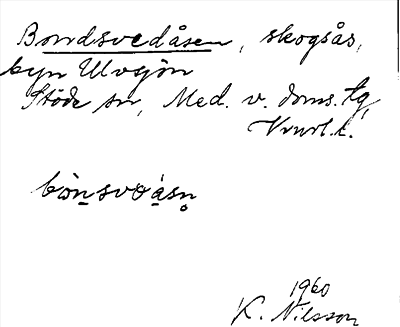 Bondsvedåsen, skogsås,
byn Ulvsjön
Stöde sn, Med. v. doms. tg,
Vnrl. l.
bònsvoàsn̥
1960
K. Nilsson